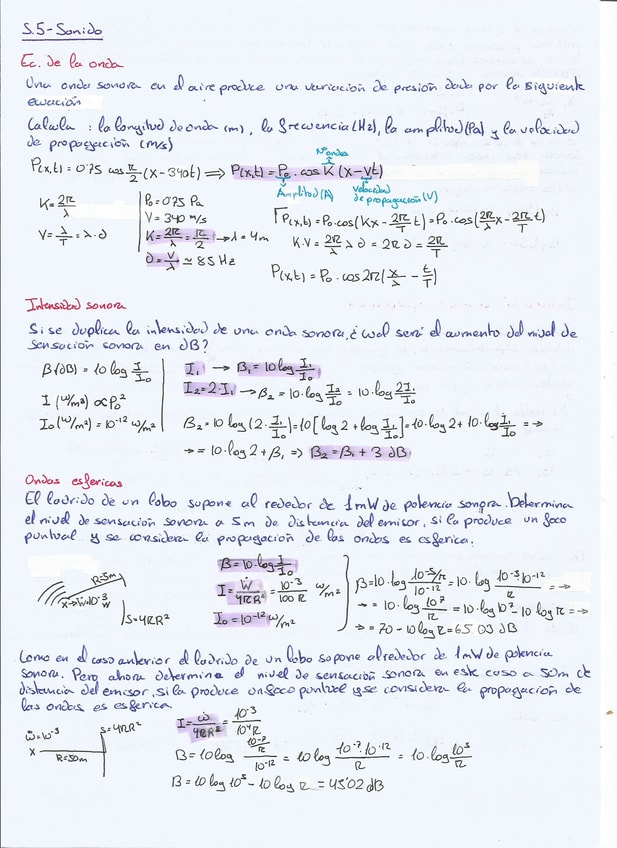 S.5-Sonido
Ec. de la onda
Una onda sonora en el aire produce una variación de presión dada por la siguiente
ecuación
Calcula : la longitud de onda (m), la frecuencia (Hz), la amplitud (Pa) y la velocidad
de propagación (m/s)
Nº onda
P(x,t) = 0'75 cos π/2 (x-340t) ⟹ P(x,t) = P₀ . cos K (x-Vt)
Amplitud (A) velocidad de propagación (V)
K = 2π/λ
V = λ/T = λ·υ
P₀ = 0'75 Pa
V = 340 m/s
K = 2π/λ = π/2 → λ = 4m
υ = V/λ ≃ 85 Hz
P(x,t) = P₀·cos(Kx - 2π/T t) = P₀·cos(2π/λ x - 2π/T t)
K·V = 2π/λ λ υ = 2π υ = 2π/T
P(x,t) = P₀ · cos 2π(x/λ - t/T)
Intensidad sonora
Si se duplica la intensidad de una onda sonora, ¿cual será el aumento del nivel de
sensación sonora en dB?
β(dB) = 10 log I/I₀
I (w/m²) ∝ P₀²
I₀ (w/m²) = 10⁻¹² w/m²
I₁ → β₁ = 10 log I₁/I₀
I₂ = 2·I₁ → β₂ = 10·log I₂/I₀ = 10·log 2I₁/I₀
β₂ = 10 log (2·I₁/I₀) = 10[log 2 + log I₁/I₀] = 10·log 2 + 10·log I₁/I₀ =→
→= 10·log 2 + β₁ ⟹ β₂ = β₁ + 3 dB
Ondas esfericas
El ladrido de un lobo supone al rededor de 1mW de potencia sonora. Determina
el nivel de sensación sonora a 5m de distancia del emisor, si la produce un foco
puntual y se considera la propagación de las ondas es esferica.
R=5m
x→ẇ=10⁻³w
S=4πR²
β = 10·log I/I₀
I = Ẇ/4πR² = 10⁻³/100π w/m²
I₀ = 10⁻¹² w/m²
β = 10·log 10⁻⁵/π/10⁻¹² = 10·log 10⁻⁵·10¹²/π =→
→= 10·log 10⁷/π = 10·log 10⁷ - 10 log π =→
→= 70 - 10 log π = 65.03 dB
Como en el caso anterior el ladrido de un lobo supone alrededor de 1mW de potencia
sonora. Pero ahora determina el nivel de sensación sonora en este caso a 50m de
distancia del emisor, si la produce un foco puntual y se considera la propagación de
las ondas es esferica.
ẇ=10⁻³
x
R=50m
S=4πR²
I = ẇ/4πR² = 10⁻³/10⁴π
B = 10 log 10⁻⁷/π/10⁻¹² = 10 log 10⁻⁷·10¹²/π = 10·log 10⁵/π
B = 10 log 10⁵ - 10 log π = 45'02 dB